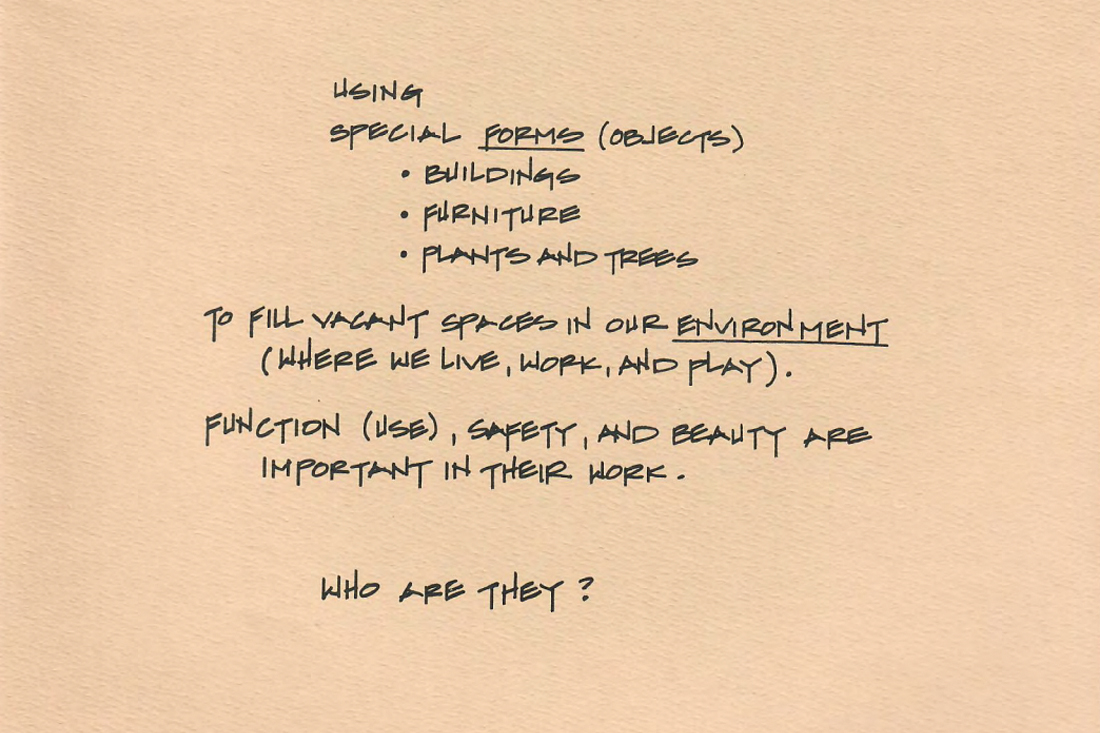 USING
SPECIAL FORMS (OBJECTS)
• BUILDINGS
• FURNITURE
• PLANTS AND TREES
TO FILL VACANT SPACES IN OUR ENVIRONMENT
(WHERE WE LIVE, WORK, AND PLAY).
FUNCTION (USE), SAFETY, AND BEAUTY ARE
IMPORTANT IN THEIR WORK.
WHO ARE THEY?